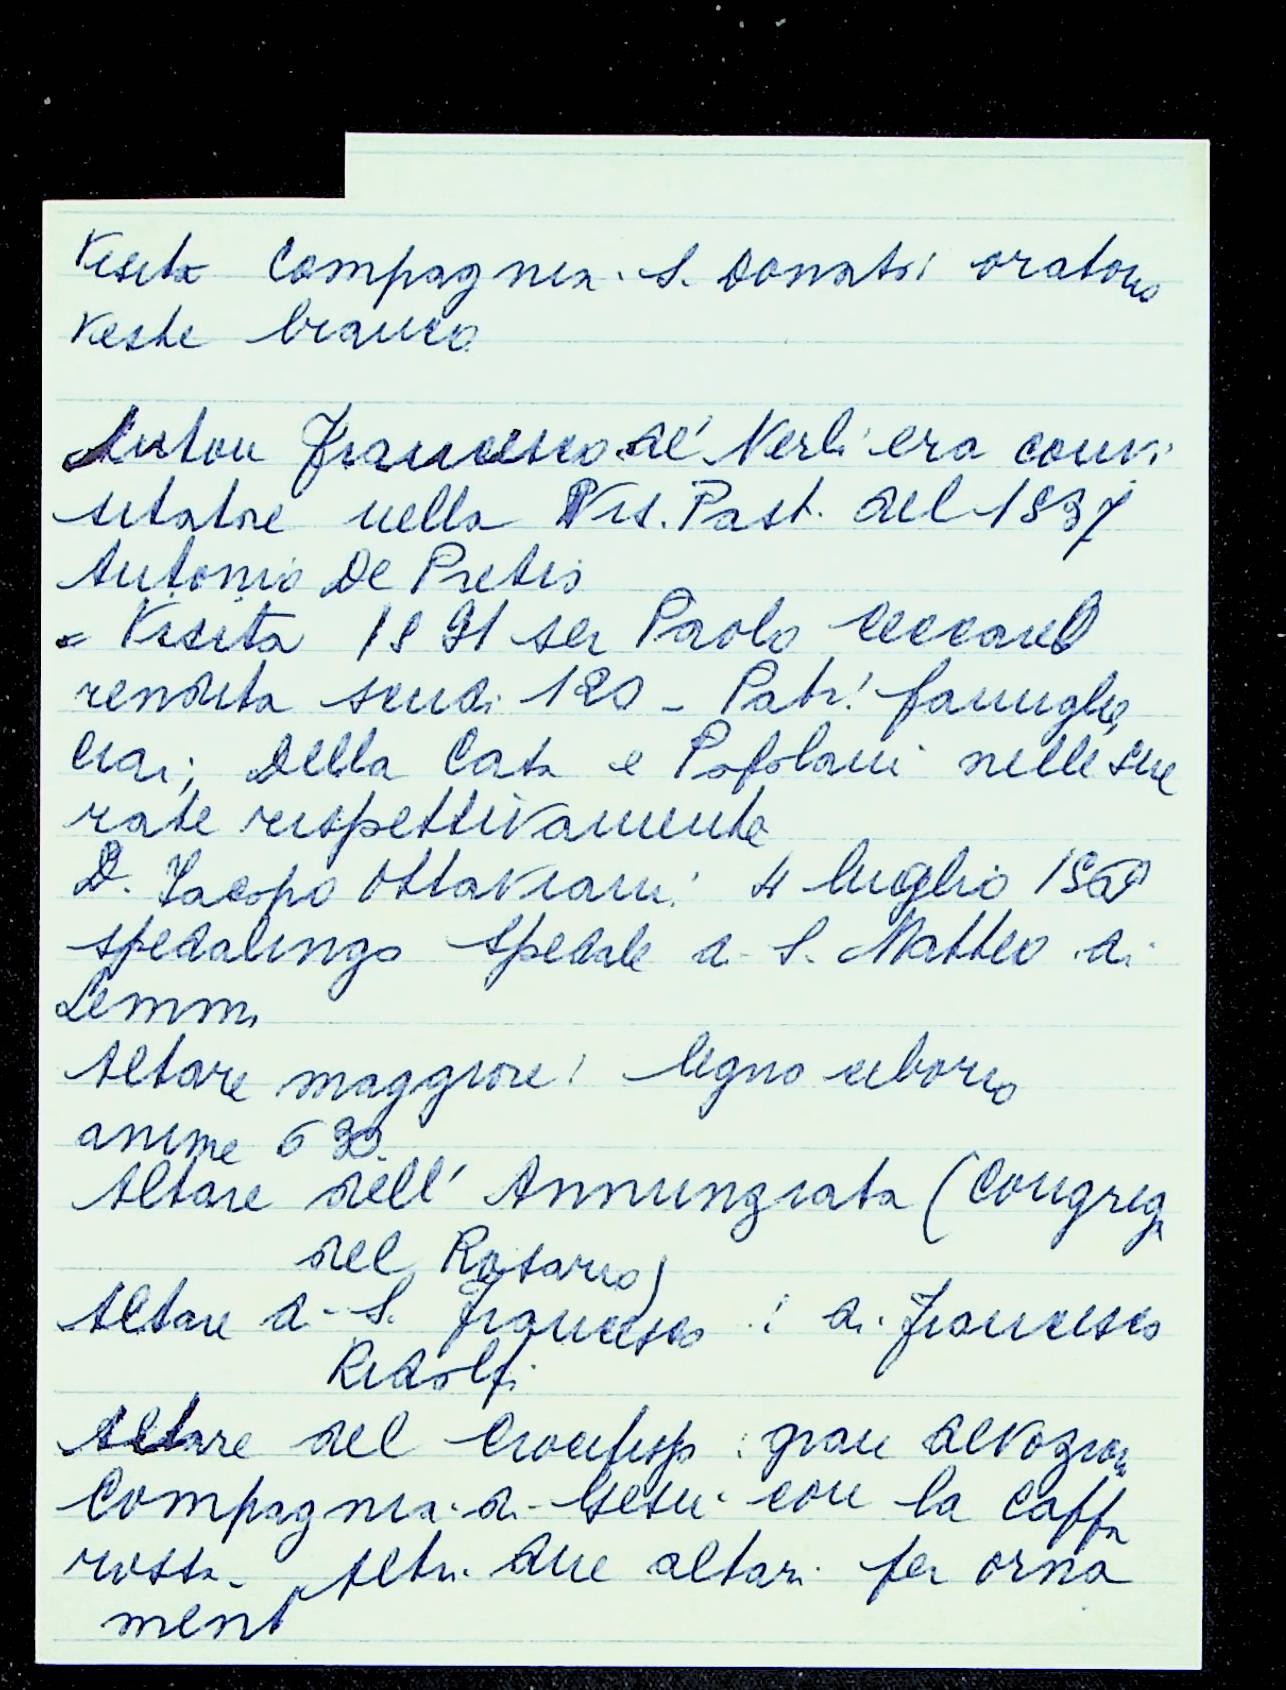 Visita Compagnia. S. Donato: oratorio
Veste bianca
Francesco de' Nerli era convi
sitatore nella Vis. Past. del 1837
Antonio De Pretis
Visita 1891 ser Paolo Ceccarel
rendita scudi 120 - Patr: famiglie
della Casa e Popolani nelle sue
rate rispettivamente
D. Jacopo Ottaviani: 4 luglio
spedalingo Spedale di S. Matteo di
Lemmi
Altare maggiore: legno ciborio
anime
Altare dell' Annunziata (Congreg.
del Rosario)
Altare di S. Francesco : di Francesco
Ridolfi
Altare del Crocifisso : gran devozion
Compagnia di Gesù con la Cappa
rossa. Altri due altari per orna
ment